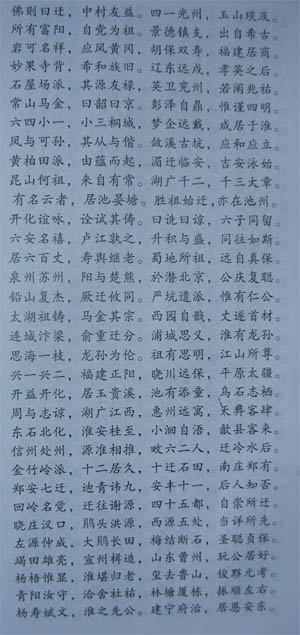 佛则曰迁，中村友益。四一光州，玉山琐及。
所有富阳，自党为祖。景德镇支，出自希古。
岩可名祥，应凤黄冈，胡保双寿，福建居商。
妙果寺背，希和族旧。辽东远戍，孝英之后。
石屋场派，其源友禄，英卫兖州，若阑兆祐。
常山马金，曰韶曰京。彭泽自鼎，惟谨四明。
六四小一，小三桐城，梦企远戴，咸居于淮。
凤与可孙，其从与偕。敛溪古坑，应和应立。
黄柏田派，由蕴而起，湄迁临安，吉安泳始。
昆山何祖，来自有常。湖广千二，千三大章。
有名云者，居池晏塘。胜祖始迁，亦在池州。
开化谊咏，诠试其俦。曰诜曰谅，六子同留。
六安名禧，卢江孰之，升积与盛，同往如斯。
居六百丈，寿舆继老。蜀地所祖，远自真保。
泉州苏州，阳与楚熊，於潜北京，公庆复聪。
铅山复杰，厥迁攸同。严坑遗派，惟有仁公。
太湖祖铸，马金其宗。西园自戬，文遂富材。
连城汴梁，俞重迁分。浦城思义，淮有龙孙。
思海一枝，龙孙为伦。祖有思明，江山所尊。
兴一兴二，福建正阳，晓川远保，平原太疆。
开益开化，居玉贵溪，池有添童，乌石志栖。
周与志谅，湖广江西，惠州远富，天彝客肆。
东石北化，淮安桂至，小洄自浯，歙县客来。
信州处州，源淮相推，畋六二人，迁冷水后。
金竹岭派，十二居久，十迁石田，南庄郑有。
郑安七迁，迪青讳九，安丰十一，后人知否。
回岭名觉，迁往谢源，四十五都，自崇所迁。
晓庄汉口，鹃头洪源，西源五处，当详所先。
左源仲成，大鹃长田，梅结断石，圣聪贞保。
竭田雄亮，宣州楫造，山东曹州，玩公居好。
杨梧惟显，淮堪归老，望去鲁山，俊夥元考。
青阳汝守，洽舍社祐，林塘厦栋，振顺左右。
杨寿斌文，淮之先公。建宁府治，居恩安东。